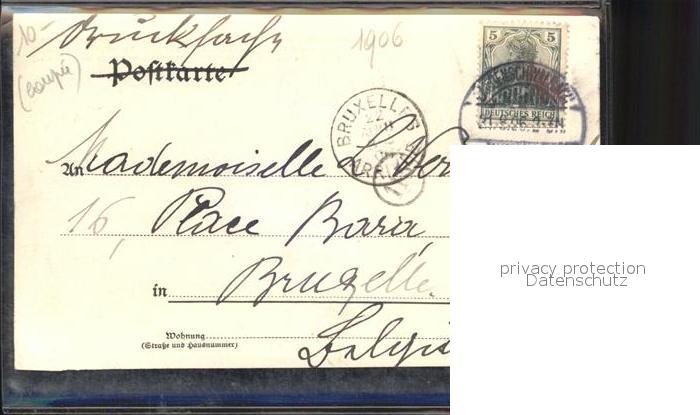 10-
Drucksache
1906
(coupé)
Postkarte
5 5
DEUTSCHES REICH
BRUXELLES
22
An Mademoiselle L.
16, Place Bara,
in Bruxelle
Wohnung
(Straße und Hausnummer)
Belgi
privacy protection
Datenschutz